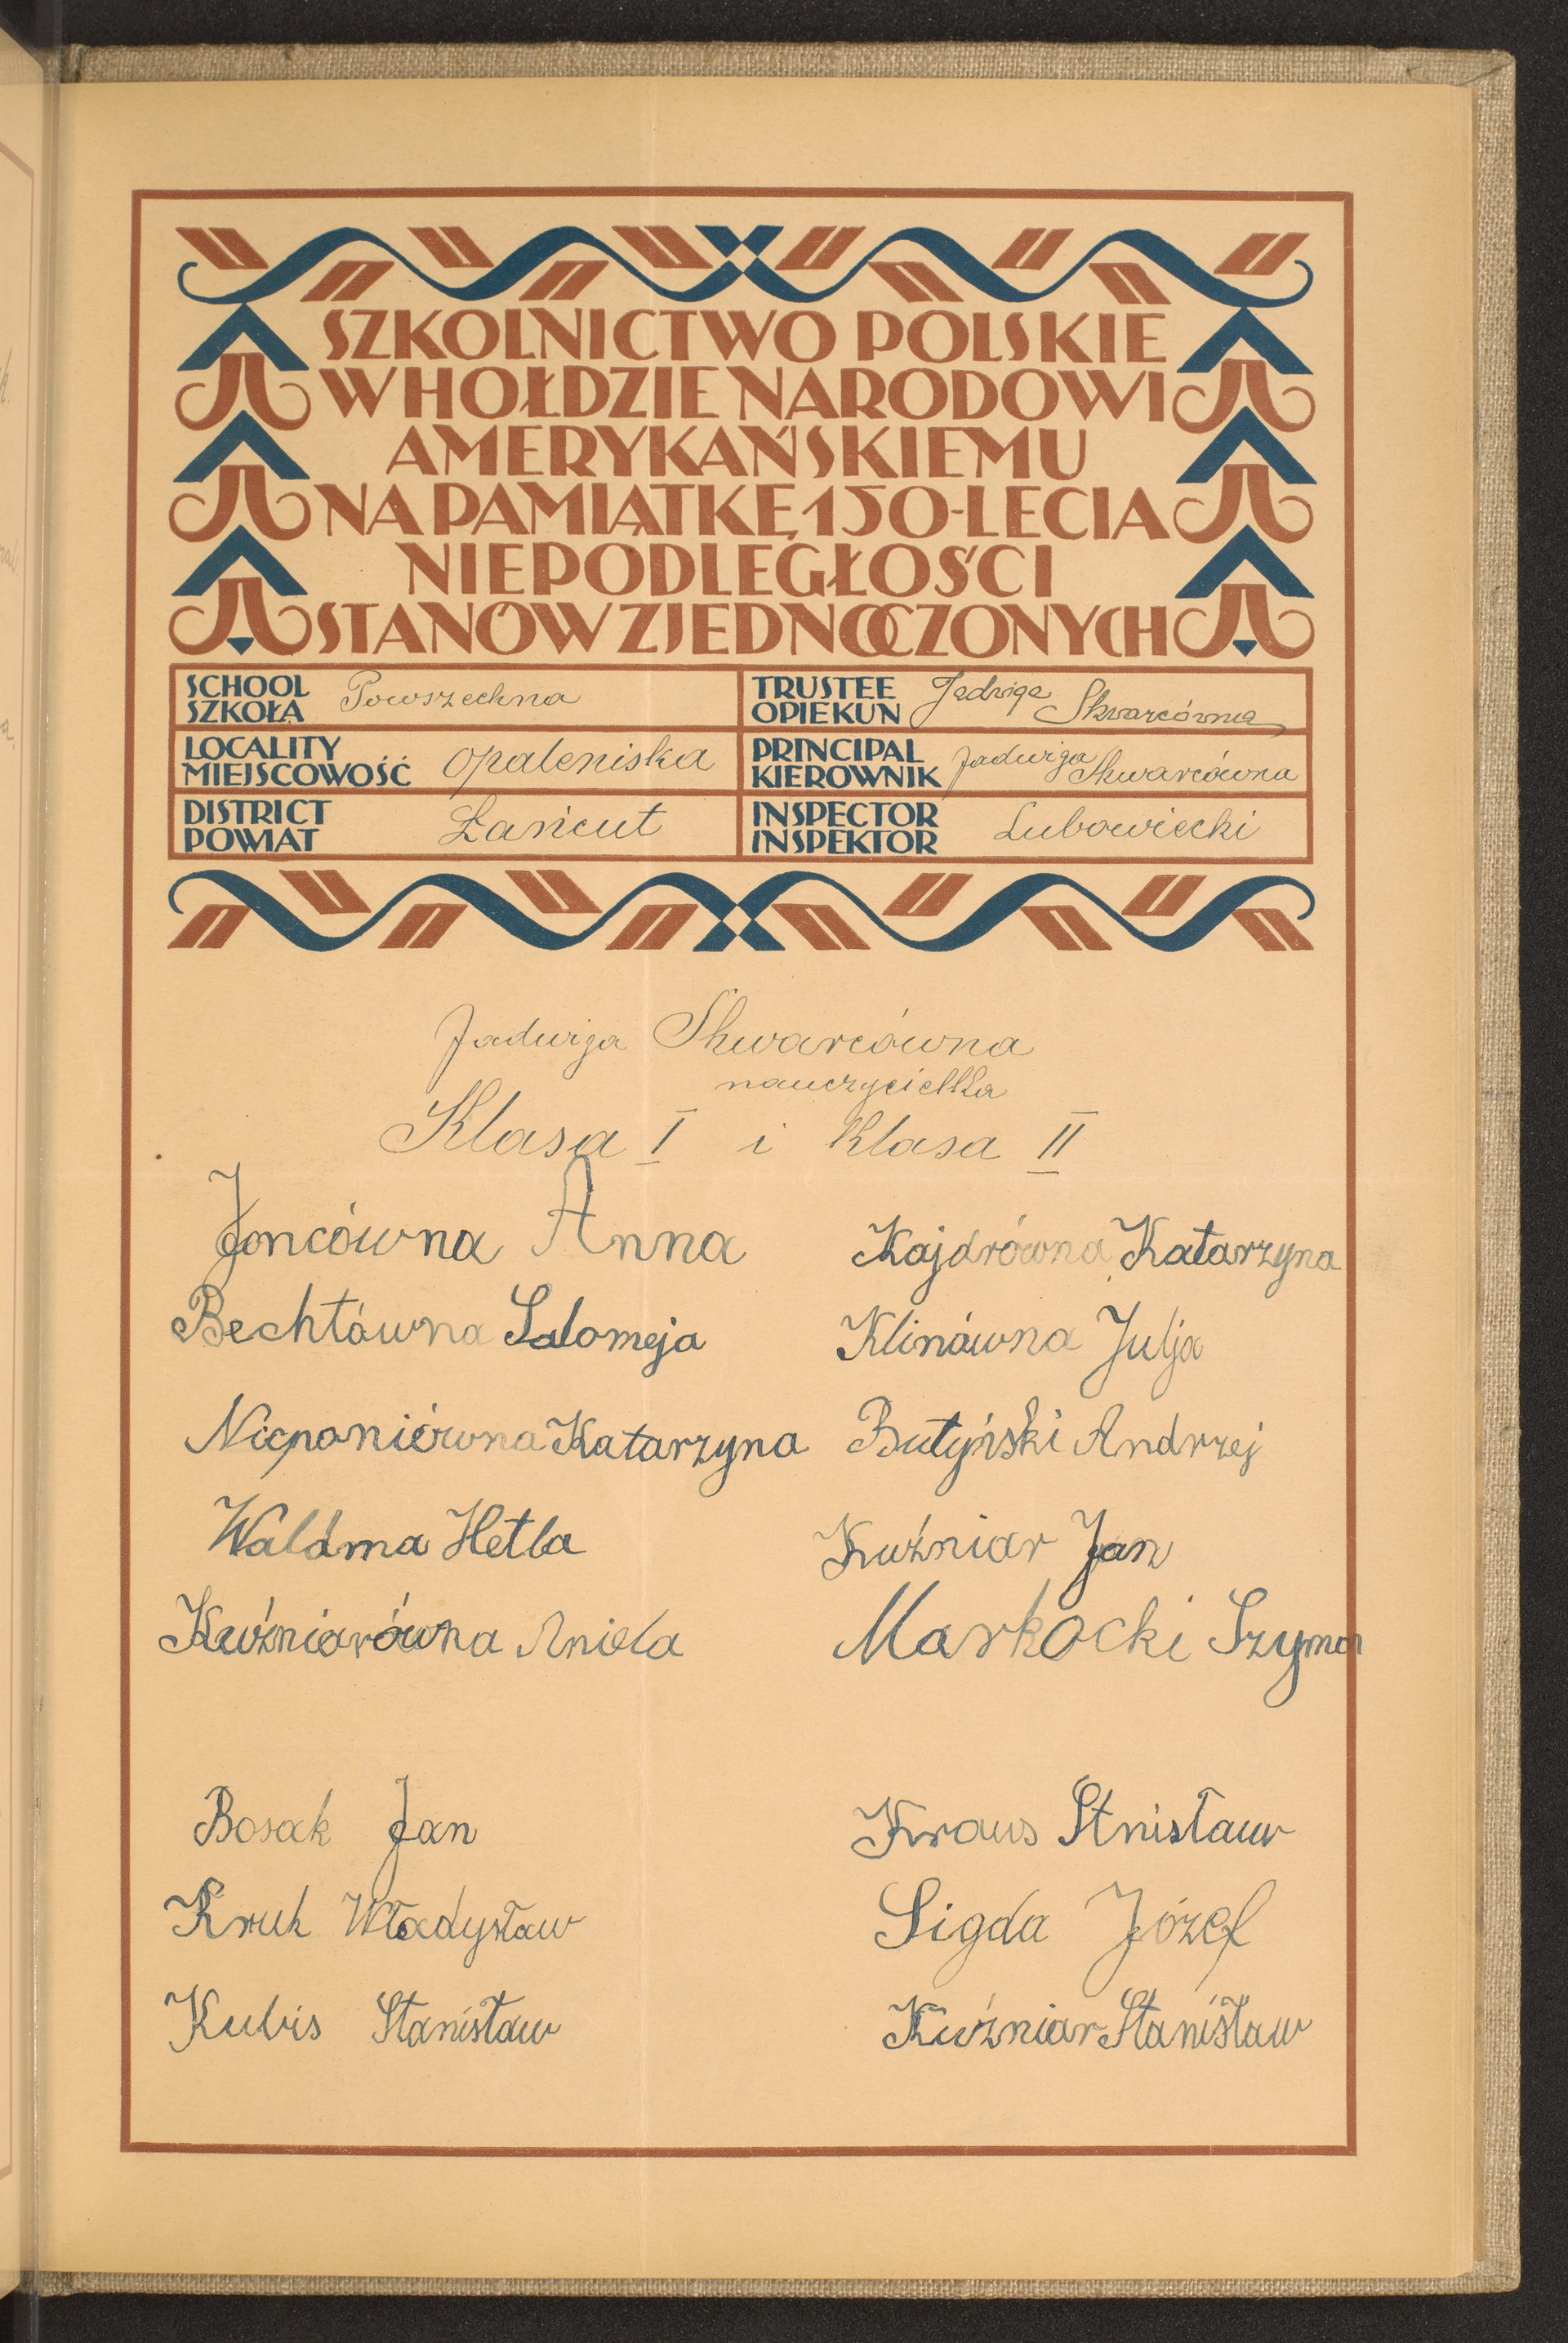 SZKOLNICTWO POLSKIE
W HOŁDZIE NARODOWI
AMERYKAŃSKIEMU
NA PAMIĄTKĘ 150-LECIA
NIEPODLEGŁOŚCI
STANÓW ZJEDNOCZONYCH
SCHOOL
SZKOŁA Powszechna
TRUSTEE
OPIEKUN Jadwiga Skwarcówna
LOCALITY
MIEJSCOWOŚĆ Opaleniska
PRINCIPAL
KIEROWNIK Jadwiga Skwarcówna
DISTRICT
POWIAT Łańcut
INSPECTOR
INSPEKTOR Lubowiecki
Jadwiga Skwarcówna
nauczycielka
Klasa I i klasa II
Joncówna Anna
Bechtówna Salomeja
Nieponiówna Katarzyna
Waldma Hetla
Kuźniarówna Aniela
Kajdrówna Katarzyna
Klinówna Julja
Butyński Andrzej
Kuźniar Jan
Markocki Szymon
Bosak Jan
Kruk Władysław
Kubis Stanisław
Kraus Stnisław
Sigda Józef
Kuźniar Stanisław